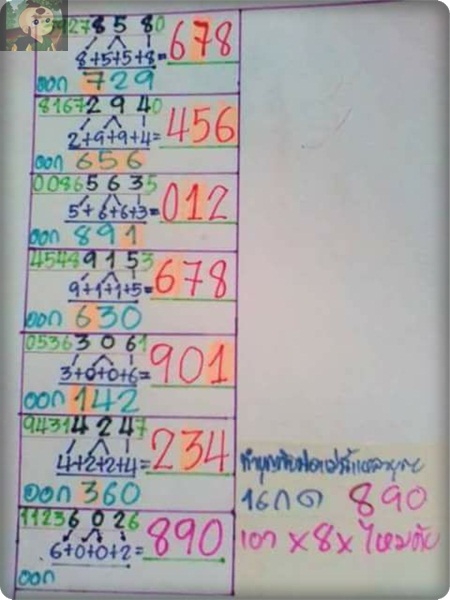 27 8 5 8 0
8+5+5+8= 678
ออก 729
8167 2 9 4 0
2+9+9+4= 456
ออก 656
0086 5 6 3 5
5+6+6+3= 012
ออก 891
4548 9 1 5 3
9+1+1+5= 678
ออก 630
0536 3 0 6 1
3+0+0+6= 901
ออก 142
9431 4 2 4 7
4+2+2+4= 234
ออก 360
1123 6 0 2 6
6+0+0+2= 890
ออก
890
เอา x8x ไหมคับ